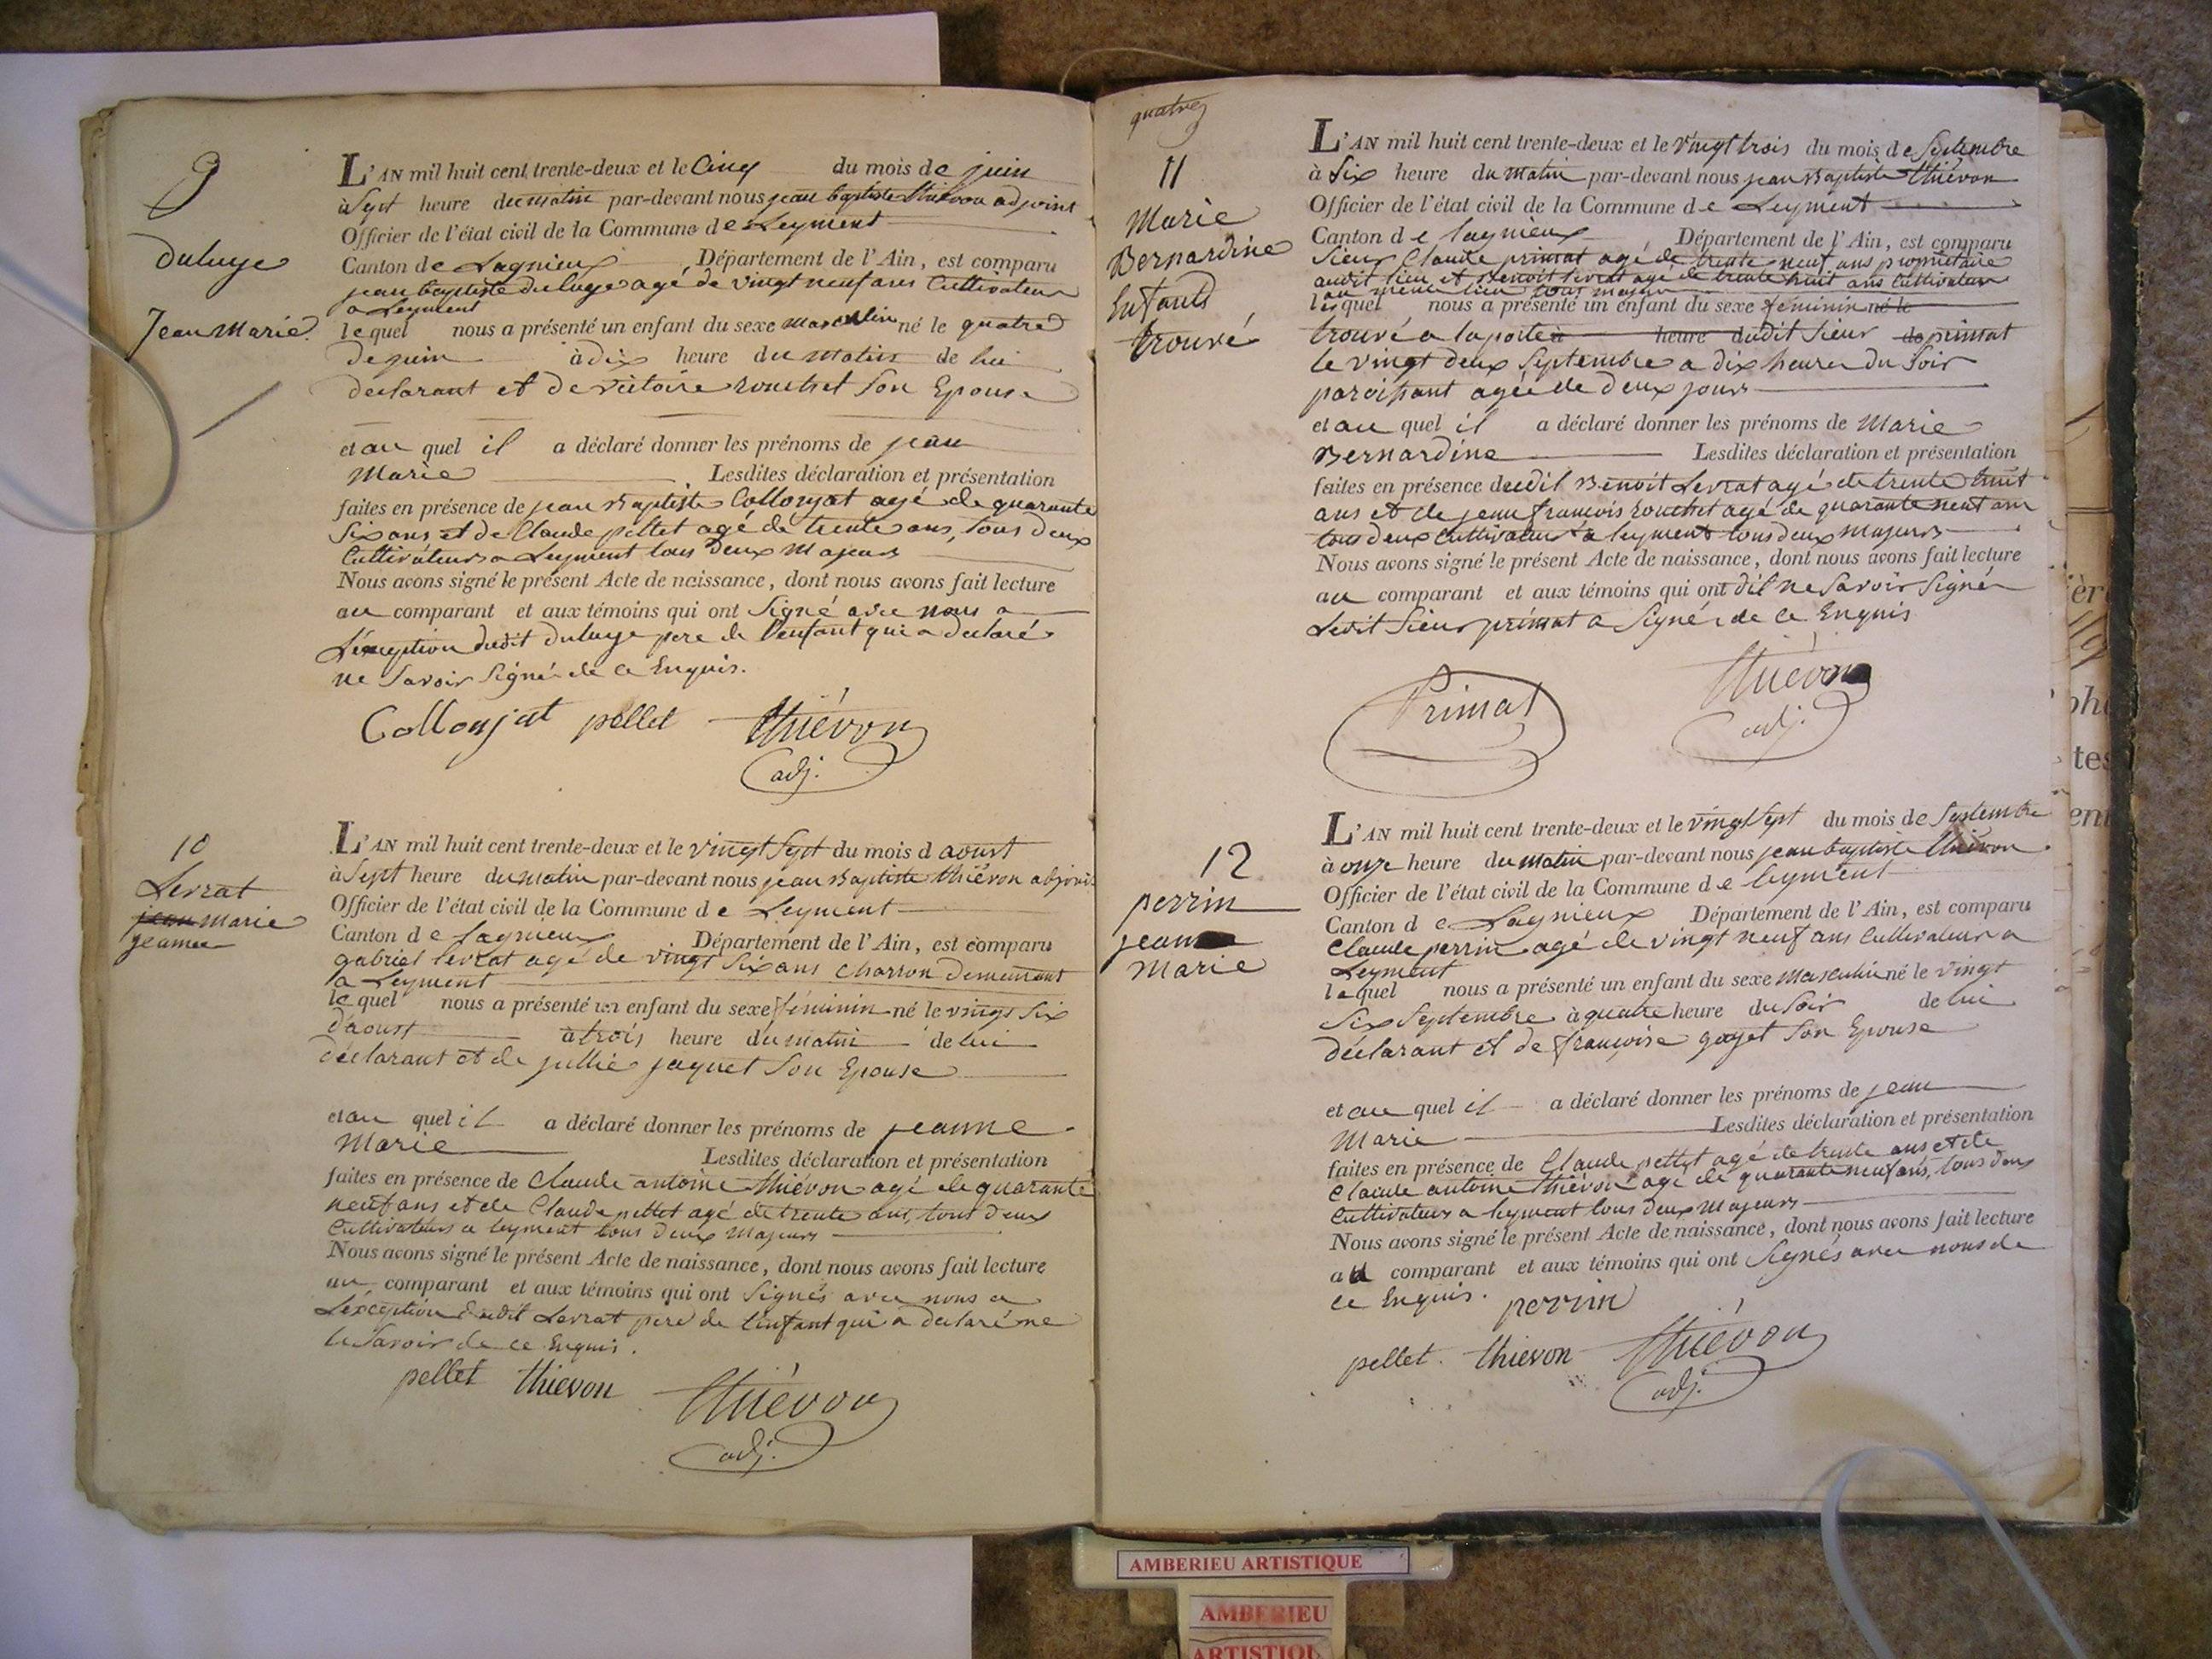 9
Duluye
Jean Marie
L'AN mil huit cent trente-deux et le Cinq du mois de juin
à Sept heure du matin par-devant nous jean baptiste thiévon adjoint
Officier de l'état civil de la Commune de Leyment
Canton de Lagnieux Département de l'Ain, est comparu
jean baptiste duluye agé de vingt neuf ans Cultivateur
a Leyment
lequel nous a présenté un enfant du sexe masculin né le quatre
de juin à dix heure du matin de lui
declarant et de victoire rouchet Son Epouse
et au quel il a déclaré donner les prénoms de jean
Marie Lesdites déclaration et présentation
faites en présence de jean Baptiste Collonjat agé de quarante
Six ans et de Claude pellet agé de trente ans, tous deux
Cultivateurs a Leyment tous deux Majeurs
Nous avons signé le présent Acte de naissance, dont nous avons fait lecture
au comparant et aux témoins qui ont Signé avec nous a
L'éxception dudit duluye pere de l'enfant qui a declaré
ne Savoir Signé de ce Enquis.
Collonjat pellet thiévon
adj.
10
Levrat
jean Marie
jeanne
L'AN mil huit cent trente-deux et le vingt Sept du mois d aoust
à Sept heure du matin par-devant nous jean Baptiste thiévon adjoint
Officier de l'état civil de la Commune de Leyment
Canton de Lagnieux Département de l'Ain, est comparu
gabriel levrat agé de vingt Six ans Charron demeurant
a Leyment
lequel nous a présenté un enfant du sexe féminin né le vingt Six
d'aoust à trois heure du matin de lui
déclarant et de jullie jaquet Son Epouse
et au quel il a déclaré donner les prénoms de jeanne
Marie Lesdites déclaration et présentation
faites en présence de Claude antoine thiévon agé de quarante
neuf ans et de Claude pellet agé de trente ans, tous deux
Cultivateurs a leyment tous deux Majeurs
Nous avons signé le présent Acte de naissance, dont nous avons fait lecture
au comparant et aux témoins qui ont Signés avec nous a
L'éxception dudit Levrat pere de l'enfant qui a declaré ne
le Savoir de ce Enquis.
pellet thievon thiévon
adj.
quatre
11
Marie
Bernardine
Enfants
trouvé
L'AN mil huit cent trente-deux et le vingt trois du mois de Septembre
à Six heure du matin par-devant nous jean Baptiste thiévon
Officier de l'état civil de la Commune de Leyment
Canton de lagnieux Département de l'Ain, est comparu
Sieur Claude primat agé de trente neuf ans propriétaire
audit lieu et Benoit levrat agé de trente huit ans Cultivateur
au même lieu tous majeur
lesquel nous a présenté un enfant du sexe feminin né le
trouvé a la porte à heure dudit Sieur de primat
le vingt deux Septembre a dix heures du Soir
paroissant agée de deux jours
et au quel il a déclaré donner les prénoms de Marie
Bernardine Lesdites déclaration et présentation
faites en présence dudit Benoit Levrat agé de trente huit
ans et de jean francois rouchet agé de quarante neuf ans
tous deux Cultivateurs a leyment tous deux majeurs
Nous avons signé le présent Acte de naissance, dont nous avons fait lecture
au comparant et aux témoins qui ont dit ne Savoir Signér
Ledit Sieur primat a Signé de ce Enquis
Primat thiévon
adj.
12
perrin
jean
Marie
L'AN mil huit cent trente-deux et le vingt Sept du mois de Septembre
à onze heure du matin par-devant nous jean baptiste thiévon
Officier de l'état civil de la Commune de leyment
Canton de Lagnieux Département de l'Ain, est comparu
Claude perrin agé de vingt neuf ans Cultivateur a
Leyment
lequel nous a présenté un enfant du sexe masculin né le vingt
Six Septembre à quatre heure du Soir de lui
déclarant et de françoise goyet Son Epouse
et au quel il a déclaré donner les prénoms de jean
Marie Lesdites déclaration et présentation
faites en présence de Claude pellet agé de trente ans et de
Claude antoine thiévon agé de quarante neuf ans, tous deux
Cultivateurs a leyment tous deux Majeurs
Nous avons signé le présent Acte de naissance, dont nous avons fait lecture
au comparant et aux témoins qui ont Signés avec nous de
ce Enquis. perrin
pellet. thievon thiévon
adj.
AMBERIEU ARTISTIQUE
AMBERIEU
ARTISTIQUE